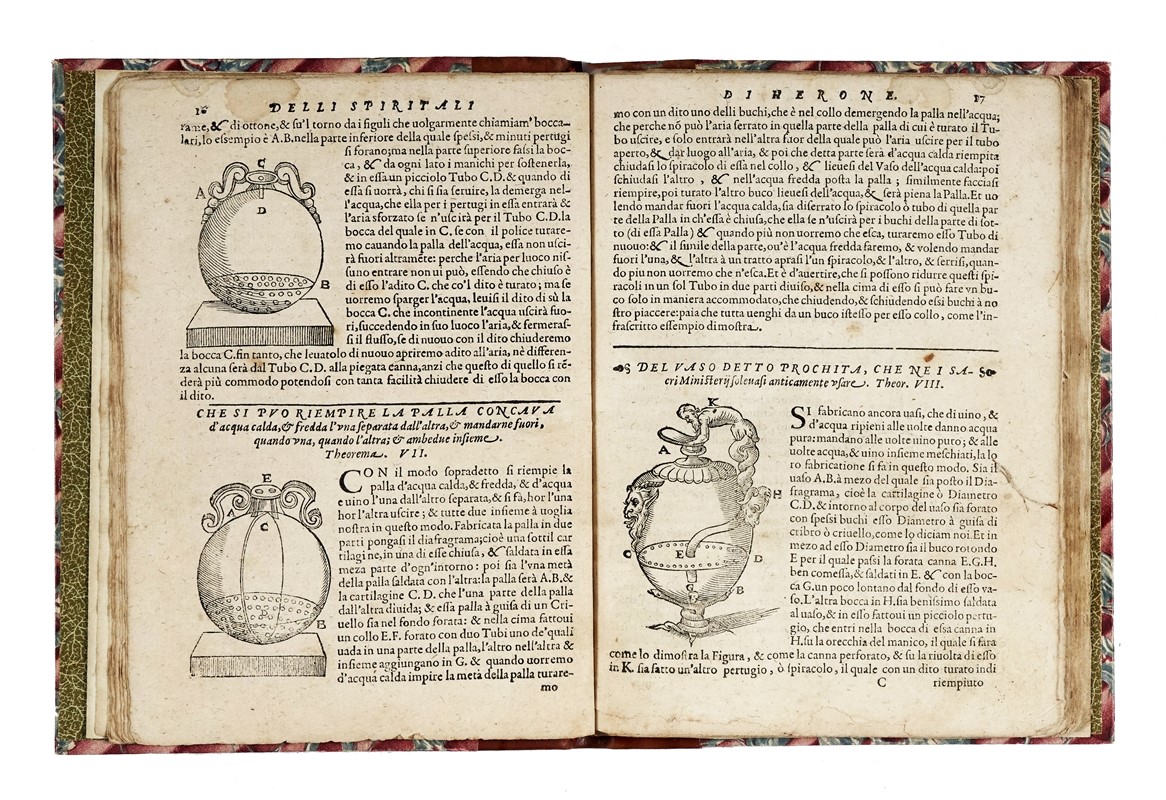 16 DELLI SPIRITALI
rame, & di ottone, & su'l torno da i figuli che uolgarmente chiamiam' bocca-
lari, lo essempio è A.B. nella parte inferiore della quale spessi, & minuti pertugi
si forano; ma nella parte superiore fassi la boc-
ca, & da ogni lato i manichi per sostenerla,
& in essa un picciolo Tubo C.D. & quando di
essa si uorrà, chi si sia seruire, la demerga nel-
l'acqua, che ella per i pertugi in essa entrarà &
l'aria sforzato se n'uscirà per il Tubo C.D. la
bocca del quale in C. se con il police turare-
mo cauando la palla dell'acqua, essa non usci-
rà fuori altramẽte: perche l'aria per luoco nis-
suno entrare non ui può, essendo che chiuso è
di esso l'adito C. che co'l dito è turato; ma se
uorremo sparger l'acqua, leuisi il dito di sù la
bocca C. che incontinente l'acqua uscirà fuo-
ri, succedendo in suo luoco l'aria, & fermeras-
si il flusso, se di nuouo con il dito chiuderemo
la bocca C. fin tanto, che leuatolo di nuouo apriremo adito all'aria, nè differen-
za alcuna serà dal Tubo C.D. alla piegata canna, anzi che questo di quello si rẽ-
derà più commodo potendosi con tanta facilità chiudere di esso la bocca con
il dito.
A
C
D
B
CHE SI PVO RIEMPIRE LA PALLA CONCAVA
d'acqua calda, & fredda l'vna separata dall'altra, & mandarne fuori,
quando vna, quando l'altra; & ambedue insieme.
Theorema. VII.
CON il modo sopradetto si riempie la
palla d'acqua calda, & fredda, & d'acqua
e uino l'una dall'altro separata, & si fà, hor l'una
hor l'altra uscire; & tutte due insieme à uoglia
nostra in questo modo. Fabricata la palla in due
parti pongasi il diafragrama; cioè una sottil car
tilagine, in una di esse chiusa, & saldata in essa
meza parte d'ogn'intorno: poi sia l'vna metà
della palla saldata con l'altra: la palla serà A.B. &
la cartilagine C.D. che l'una parte della palla
dall'altra diuida; & essa palla à guisa di un Cri-
uello sia nel fondo forata: & nella cima fattoui
un collo E.F. forato con duo Tubi uno de'quali
uada in una parte della palla, l'altro nell'altra &
insieme aggiungano in G. & quando uorremo
d'acqua calda impire la metà della palla turare-
mo
E
A
C
D
B
DI HERONE. 17
mo con un dito uno delli buchi, che è nel collo demergendo la palla nell'acqua;
che perche nõ può l'aria serrato in quella parte della palla di cui è turato il Tu-
bo uscire, e solo entrarà nell'altra fuor della quale può l'aria uscire per il tubo
aperto, & dar luogo all'aria, & poi che detta parte serà d'acqua calda riempita
chiudasi lo spiracolo di essa nel collo, & lieuesi del Vaso dell'acqua calda: poi
schiudasi l'altro, & nell'acqua fredda posta la palla; similmente facciasi
riempire, poi turato l'altro buco lieuesi dell'acqua, & serà piena la Palla. Et uo
lendo mandar fuori l'acqua calda, sia diserrato lo spiracolo ò tubo di quella par
te della Palla in ch'essa è chiusa, che ella se n'uscirà per i buchi della parte di sot-
to (di essa Palla) & quando più non uorremo che esca, turaremo esso Tubo di
nuouo: & il simile della parte, ou'è l'acqua fredda faremo, & volendo mandar
fuori l'una, & l'altra à un tratto aprasi l'un spiracolo, & l'altro, & serrisi, quan-
do piu non uorremo che n'esca. Et è d'auertire, che si possono ridurre questi spi-
racoli in un sol Tubo in due parti diuiso, & nella cima di esso si può fare vn bu-
co solo in maniera accommodato, che chiudendo, & schiudendo essi buchi à no
stro piaccere: paia che tutta uenghi da un buco istesso per esso collo, come l'in-
frascritto essempio dimostra.
DEL VASO DETTO PROCHITA, CHE NE I SA-
cri Ministerij soleuasi anticamente vsare. Theor. VIII.
K
A
H
C
E
D
G
B
SI fabricano ancora uasi, che di uino, &
d'acqua ripieni alle uolte danno acqua
pura: mandano alle uolte uino puro; & alle
uolte acqua, & uino insieme meschiati, la lo
ro fabricatione si fa in questo modo. Sia il
uaso A.B. à mezo del quale sia posto il Dia-
fragrama, cioè la cartilagine ò Diametro
C.D. & intorno al corpo del uaso sia forato
con spessi buchi esso Diametro à guisa di
cribro ò criuello, come lo diciam noi. Et in
mezo ad esso Diametro sia il buco rotondo
E per il quale passi la forata canna E.G.H.
ben comessa, & saldati in E. & con la boc-
ca G. un poco lontano dal fondo di esso va-
so. L'altra bocca in H. sia benissimo saldata
al uaso, & in esso fattoui un picciolo pertu-
gio, che entri nella bocca di essa canna in
H. su la orecchia del manico, il quale si fara
come lo dimostra la Figura, & come la canna perforato, & su la riuolta di esso
in K. sia fatto un'altro pertugio, ò spiracolo, il quale con un dito turato indi
C riempiuto